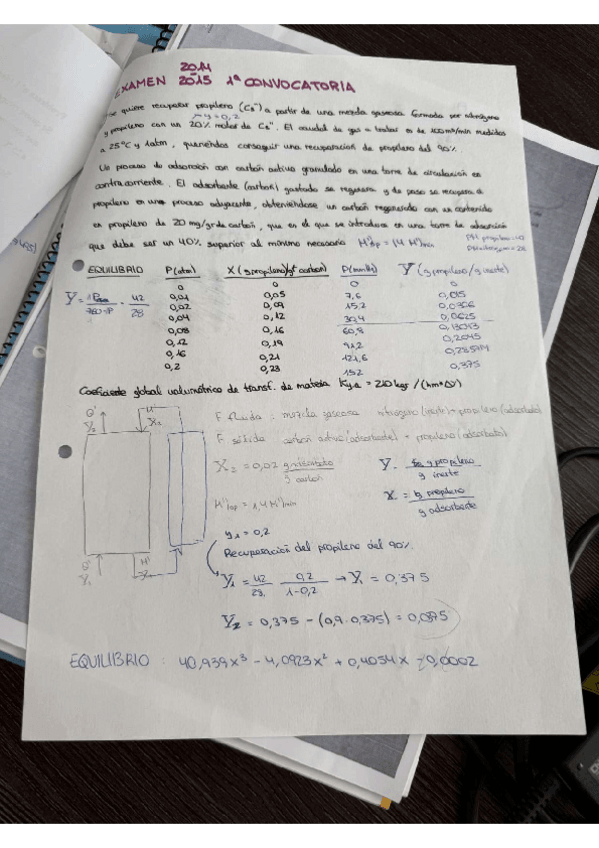 EXAMEN 2014 - 2015 1ª CONVOCATORIA
se quiere recuperar propileno (C3") a partir de una mezcla gaseosa formada por nitrógeno
→ y = 0,2
y propileno con un 20% molar de C3". El caudal de gas a tratar es de 100 m³/min medidos
a 25°C y 1 atm, queriéndose conseguir una recuperación de propileno del 90%.
Un proceso de adsorción con carbón activo granulado en una torre de circulación en
contracorriente. El adsorbente (carbón) gastado se regenera, y de paso se recupera el
propileno en un proceso adyacente, obteniéndose un carbón regenerado con un contenido
en propileno de 20 mg/gr de carbón, que es el que se introduce en una torre de adsorción
que debe ser un 40% superior al mínimo necesario M'op = 1,4 M'min
EQUILIBRIO P(atm) X (g propileno/gr carbón) P(mmHg) Y (g propileno/g inerte)
0 0 0 0
0,01 0,05 7,6 0,015
0,02 0,09 15,2 0,0306
0,04 0,12 30,4 0,0625
0,08 0,16 60,8 0,13043
0,12 0,19 91,2 0,2045
0,16 0,21 121,6
0,2 0,23 152 0,375
Coeficiente global volumétrico de transf. de materia Kya = 210 kgr / (h m³ ΔY)
G' Y2 M' X2
F fluida : mezcla gaseosa nitrógeno (inerte) + propileno (adsorbato)
F sólida carbón activo (adsorbente) + propileno (adsorbato)
X2 = 0,02 g adsorbato / g carbón
Y = g propileno / g inerte
M'op = 1,4 M'min
X = g propileno / g adsorbente
y1 = 0,2
Recuperación del propileno del 90%
G' Y1 M' X1
Y1 = 42/28 · 0,2/(1-0,2) → Y1 = 0,375
Y2 = 0,375 - (0,9 · 0,375) = 0,0375
EQUILIBRIO : 40,939x³ - 4,0923x² + 0,4054x - 0,0002